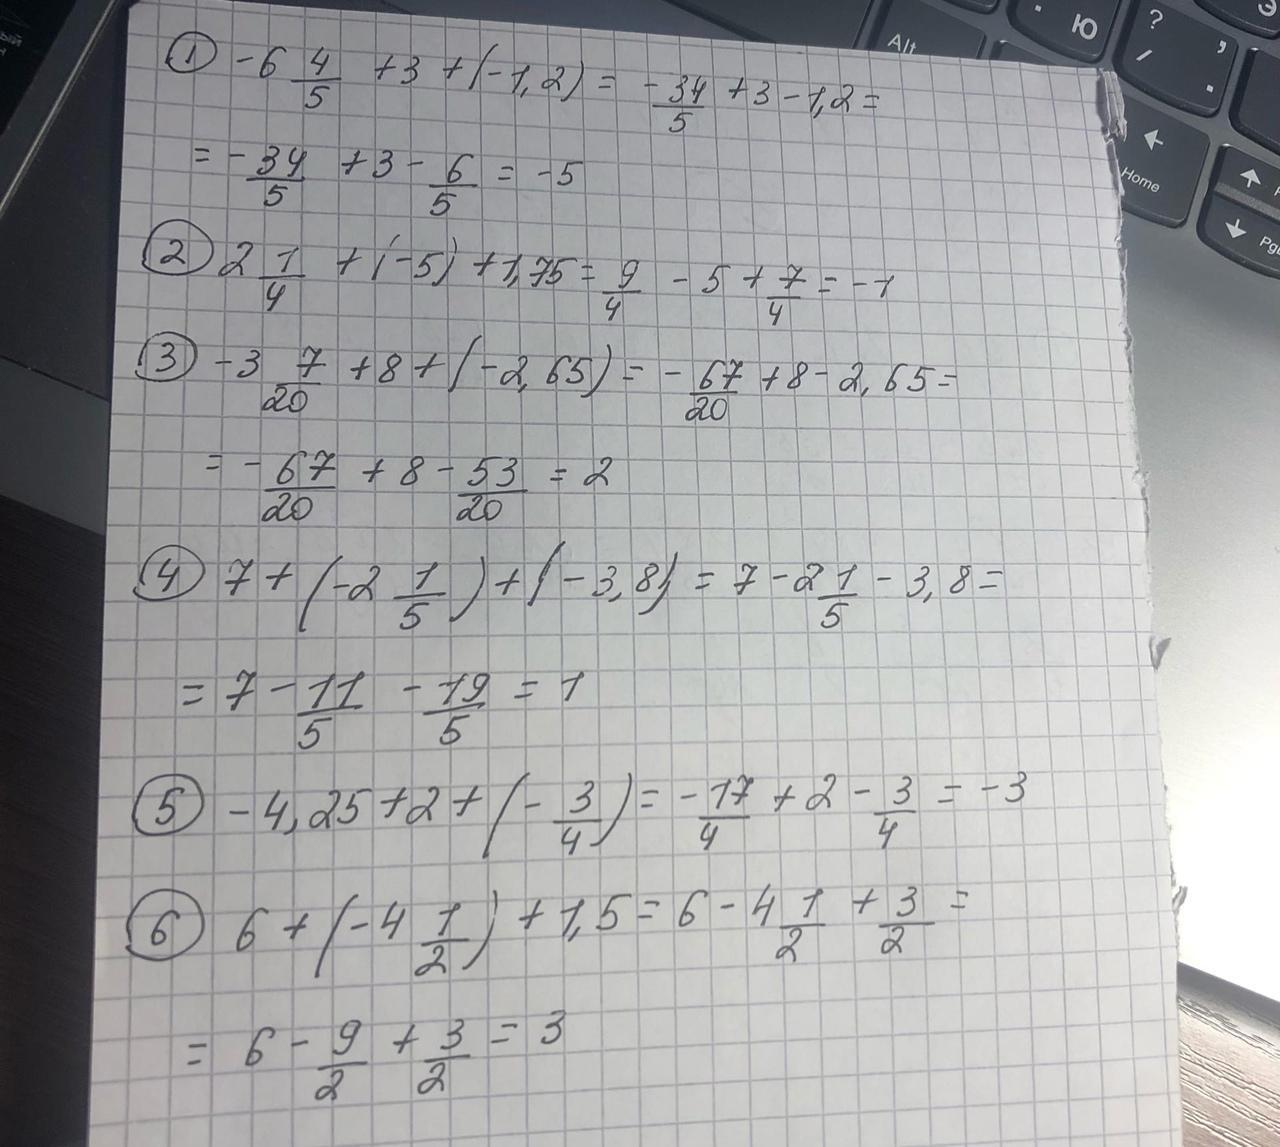 ① -6 4/5 +3 + (-1,2) = -34/5 +3 - 1,2 =
= -34/5 +3 - 6/5 = -5
② 2 1/4 + (-5) + 1,75 = 9/4 - 5 + 7/4 = -1
③ -3 7/20 +8 + (-2,65) = -67/20 +8 - 2,65 =
= -67/20 + 8 - 53/20 = 2
④ 7 + (-2 1/5) + (-3,8) = 7 - 2 1/5 - 3,8 =
= 7 - 11/5 - 19/5 = 1
⑤ -4,25 + 2 + (-3/4) = -17/4 + 2 - 3/4 = -3
⑥ 6 + (-4 1/2) + 1,5 = 6 - 4 1/2 + 3/2 =
= 6 - 9/2 + 3/2 = 3
Alt
Ю
? , / .
Home